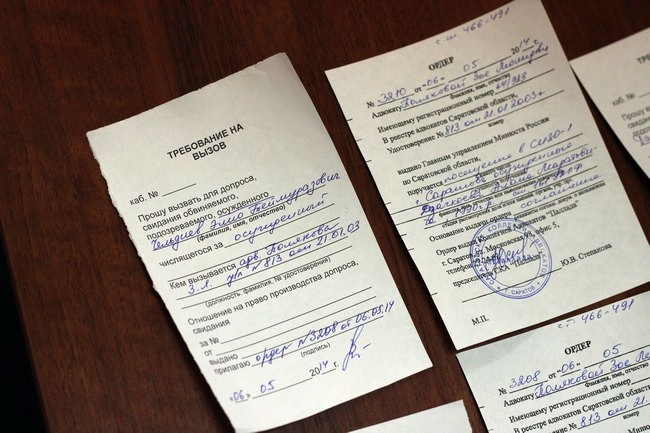 ТРЕБОВАНИЕ НА
ВЫЗОВ
каб. № ____
Прошу вызвать для допроса,
свидания обвиняемого,
подозреваемого, осужденного
Теймуразович
(фамилия, имя, отчество)
числящегося за осужденный
Кем вызывается адв. Полякова
З.Л. уд №813 от 21.01.03
(должность, фамилия, № удостоверения)
Отношение на право производства допроса,
свидания
за №
от
выдано
прилагаю ордер №3208 от 06.05.14
(подпись)
«06» 05 2014 г.
с.т. 466-491
ОРДЕР
№ 3210 от "06" 05 2014
Адвокату Поляковой Зое
Фамилия, имя, отчество
Имеющему регистрационный номер 64/923
В реестре адвокатов Саратовской области,
Удостоверение №813 от 21.01.2003г
номер, когда выдано
выдано Главным управлением Минюста России
по Саратовской области,
поручается посещение в СИЗО-1
г. Саратова осужденного
Основание выдачи ордера соглашение
Ордер выдан коллегией адвокатов "Паллада"
г. Саратов, ул. Московская, офис 5,
телефон
председатель СКА "Паллада" Ю.В. Степанова
М.П.
САРАТОВ
с.т. 466-491
ОРДЕР
№ 3208 от "06" 05
Адвокату Поляковой Зое
Фамилия, имя, отчество
Имеющему регистрационный номер
В реестре адвокатов Саратовской
Удостоверение №813 от 21.
каб. №
Прошу